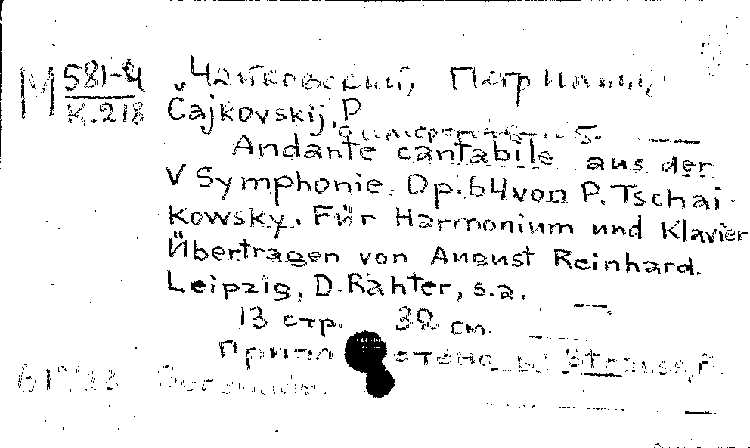 М 581-4
К.218
Чайковский, Петр Ильич,
Čajkovskij, P
5.
Andante cantabile aus der
V Symphonie. Op.64 von P. Tschai-
kowsky. Für Harmonium und Klavier
Übertragen von August Reinhard.
Leipzig, D. Rahter, s.a.
13 стр. 32 см.
Strauss, R.